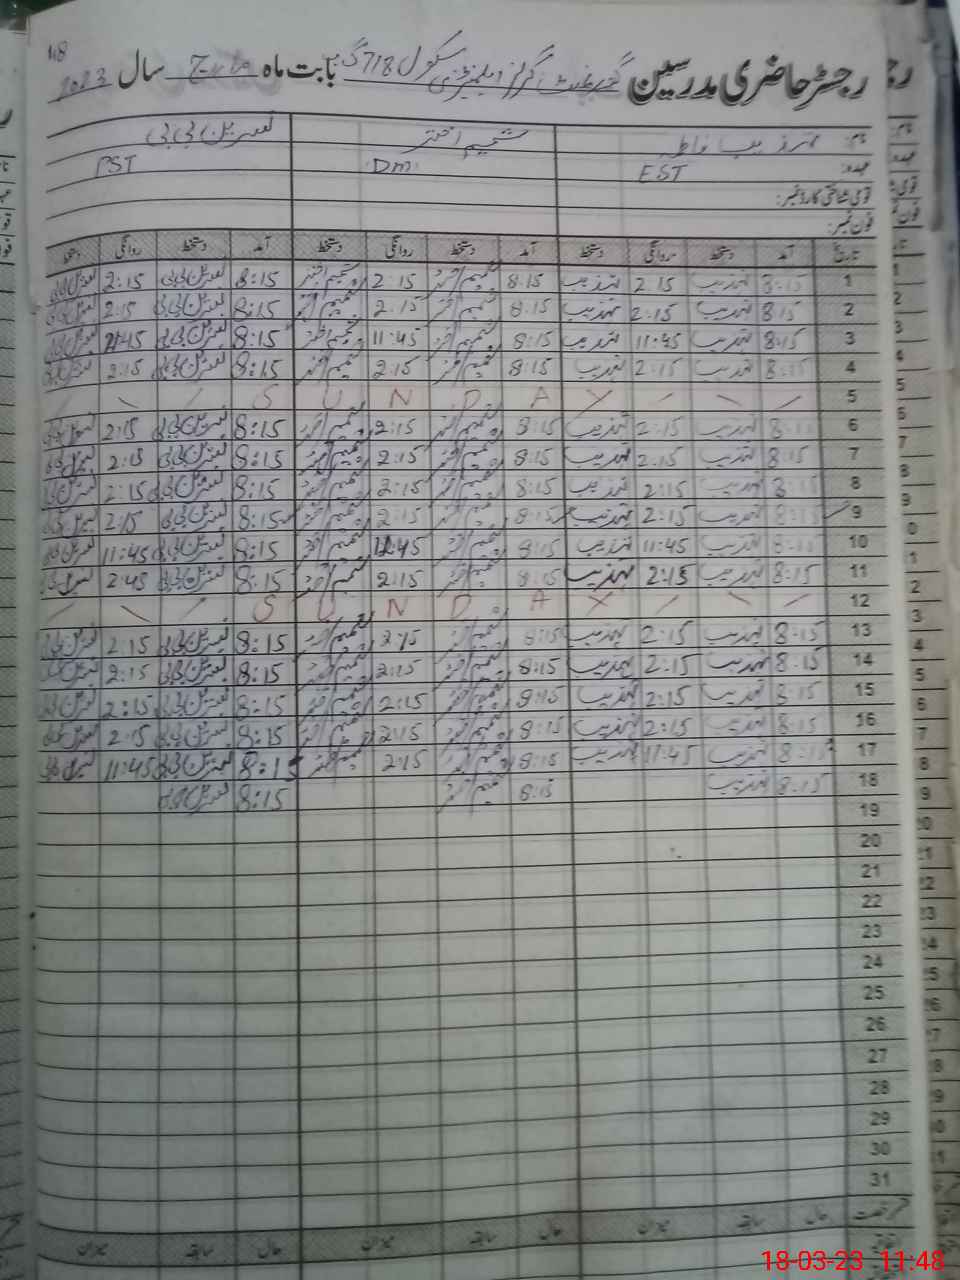 118
رجسٹر حاضری مدرسین گورنمنٹ گرلز ایلیمنٹری سکول 718 گ ب بابت ماہ مارچ سال 2023
نام: تہذیب فاطمہ شمیم اختر نسرین بی بی
عہدہ: EST DM PST
قومی شناختی کارڈ نمبر:
فون نمبر:
تاریخ آمد دستخط روانگی دستخط آمد دستخط روانگی دستخط آمد دستخط روانگی دستخط
1 8:15 تہذیب 2:15 تہذیب 8:15 شمیم اختر 2:15 شمیم اختر 8:15 نسرین بی بی 2:15 نسرین بی بی
2 8:15 تہذیب 2:15 تہذیب 8:15 شمیم اختر 2:15 شمیم اختر 8:15 نسرین بی بی 2:15 نسرین بی بی
3 8:15 تہذیب 11:45 تہذیب 8:15 شمیم اختر 11:45 شمیم اختر 8:15 نسرین بی بی 11:45 نسرین بی بی
4 8:15 تہذیب 2:15 تہذیب 8:15 شمیم اختر 2:15 شمیم اختر 8:15 نسرین بی بی 2:15 نسرین بی بی
5 S U N D A Y
6 8:15 تہذیب 2:15 تہذیب 8:15 شمیم اختر 2:15 شمیم اختر 8:15 نسرین بی بی 2:15 نسرین بی بی
7 8:15 تہذیب 2:15 تہذیب 8:15 شمیم اختر 2:15 شمیم اختر 8:15 نسرین بی بی 2:15 نسرین بی بی
8 8:15 تہذیب 2:15 تہذیب 8:15 شمیم اختر 2:15 شمیم اختر 8:15 نسرین بی بی 2:15 نسرین بی بی
9 8:15 تہذیب 2:15 تہذیب 8:15 شمیم اختر 2:15 شمیم اختر 8:15 نسرین بی بی 2:15 نسرین بی بی
10 8:15 تہذیب 11:45 تہذیب 8:15 شمیم اختر 11:45 شمیم اختر 8:15 نسرین بی بی 11:45 نسرین بی بی
11 8:15 تہذیب 2:15 تہذیب 8:15 شمیم اختر 2:15 شمیم اختر 8:15 نسرین بی بی 2:45 نسرین بی بی
12 S U N D A Y
13 8:15 تہذیب 2:15 تہذیب 8:15 شمیم اختر 2:15 شمیم اختر 8:15 نسرین بی بی 2:15 نسرین بی بی
14 8:15 تہذیب 2:15 تہذیب 8:15 شمیم اختر 2:15 شمیم اختر 8:15 نسرین بی بی 2:15 نسرین بی بی
15 8:15 تہذیب 2:15 تہذیب 8:15 شمیم اختر 2:15 شمیم اختر 8:15 نسرین بی بی 2:15 نسرین بی بی
16 8:15 تہذیب 2:15 تہذیب 8:15 شمیم اختر 2:15 شمیم اختر 8:15 نسرین بی بی 2:15 نسرین بی بی
17 8:15 تہذیب 11:45 تہذیب 8:15 شمیم اختر 2:15 شمیم اختر 8:15 نسرین بی بی 11:45 نسرین بی بی
18 8:15 تہذیب 8:15 شمیم اختر 8:15 نسرین بی بی
19
20
21
22
23
24
25
26
27
28
29
30
31
رخصت حال سابقہ میزان حال سابقہ میزان حال سابقہ میزان
18-03-23 11:48